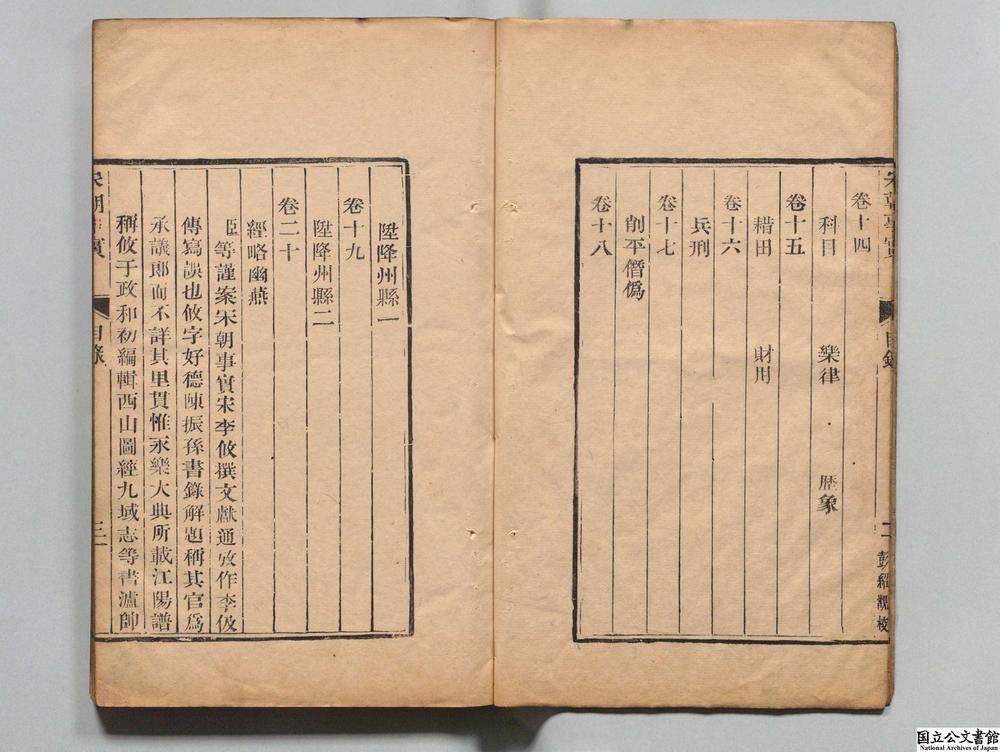 宋朝事實
目錄
二
彭紹觀校
卷十四
科目 樂律 歷象
卷十五
藉田 財用
卷十六
兵刑
卷十七
削平僭僞
卷十八
陞降州縣一
卷十九
陞降州縣二
卷二十
經略幽燕
臣等謹案宋朝事實宋李攸撰文獻通攷作李伋
傳寫誤也攸字好德陳振孫書錄解題稱其官爲
承議郎而不詳其里貫惟永樂大典所載江陽譜
稱攸于政和初編輯西山圖經九域志等書瀘帥
宋朝事實
目錄
三
国立公文書館
National Archives of Japan